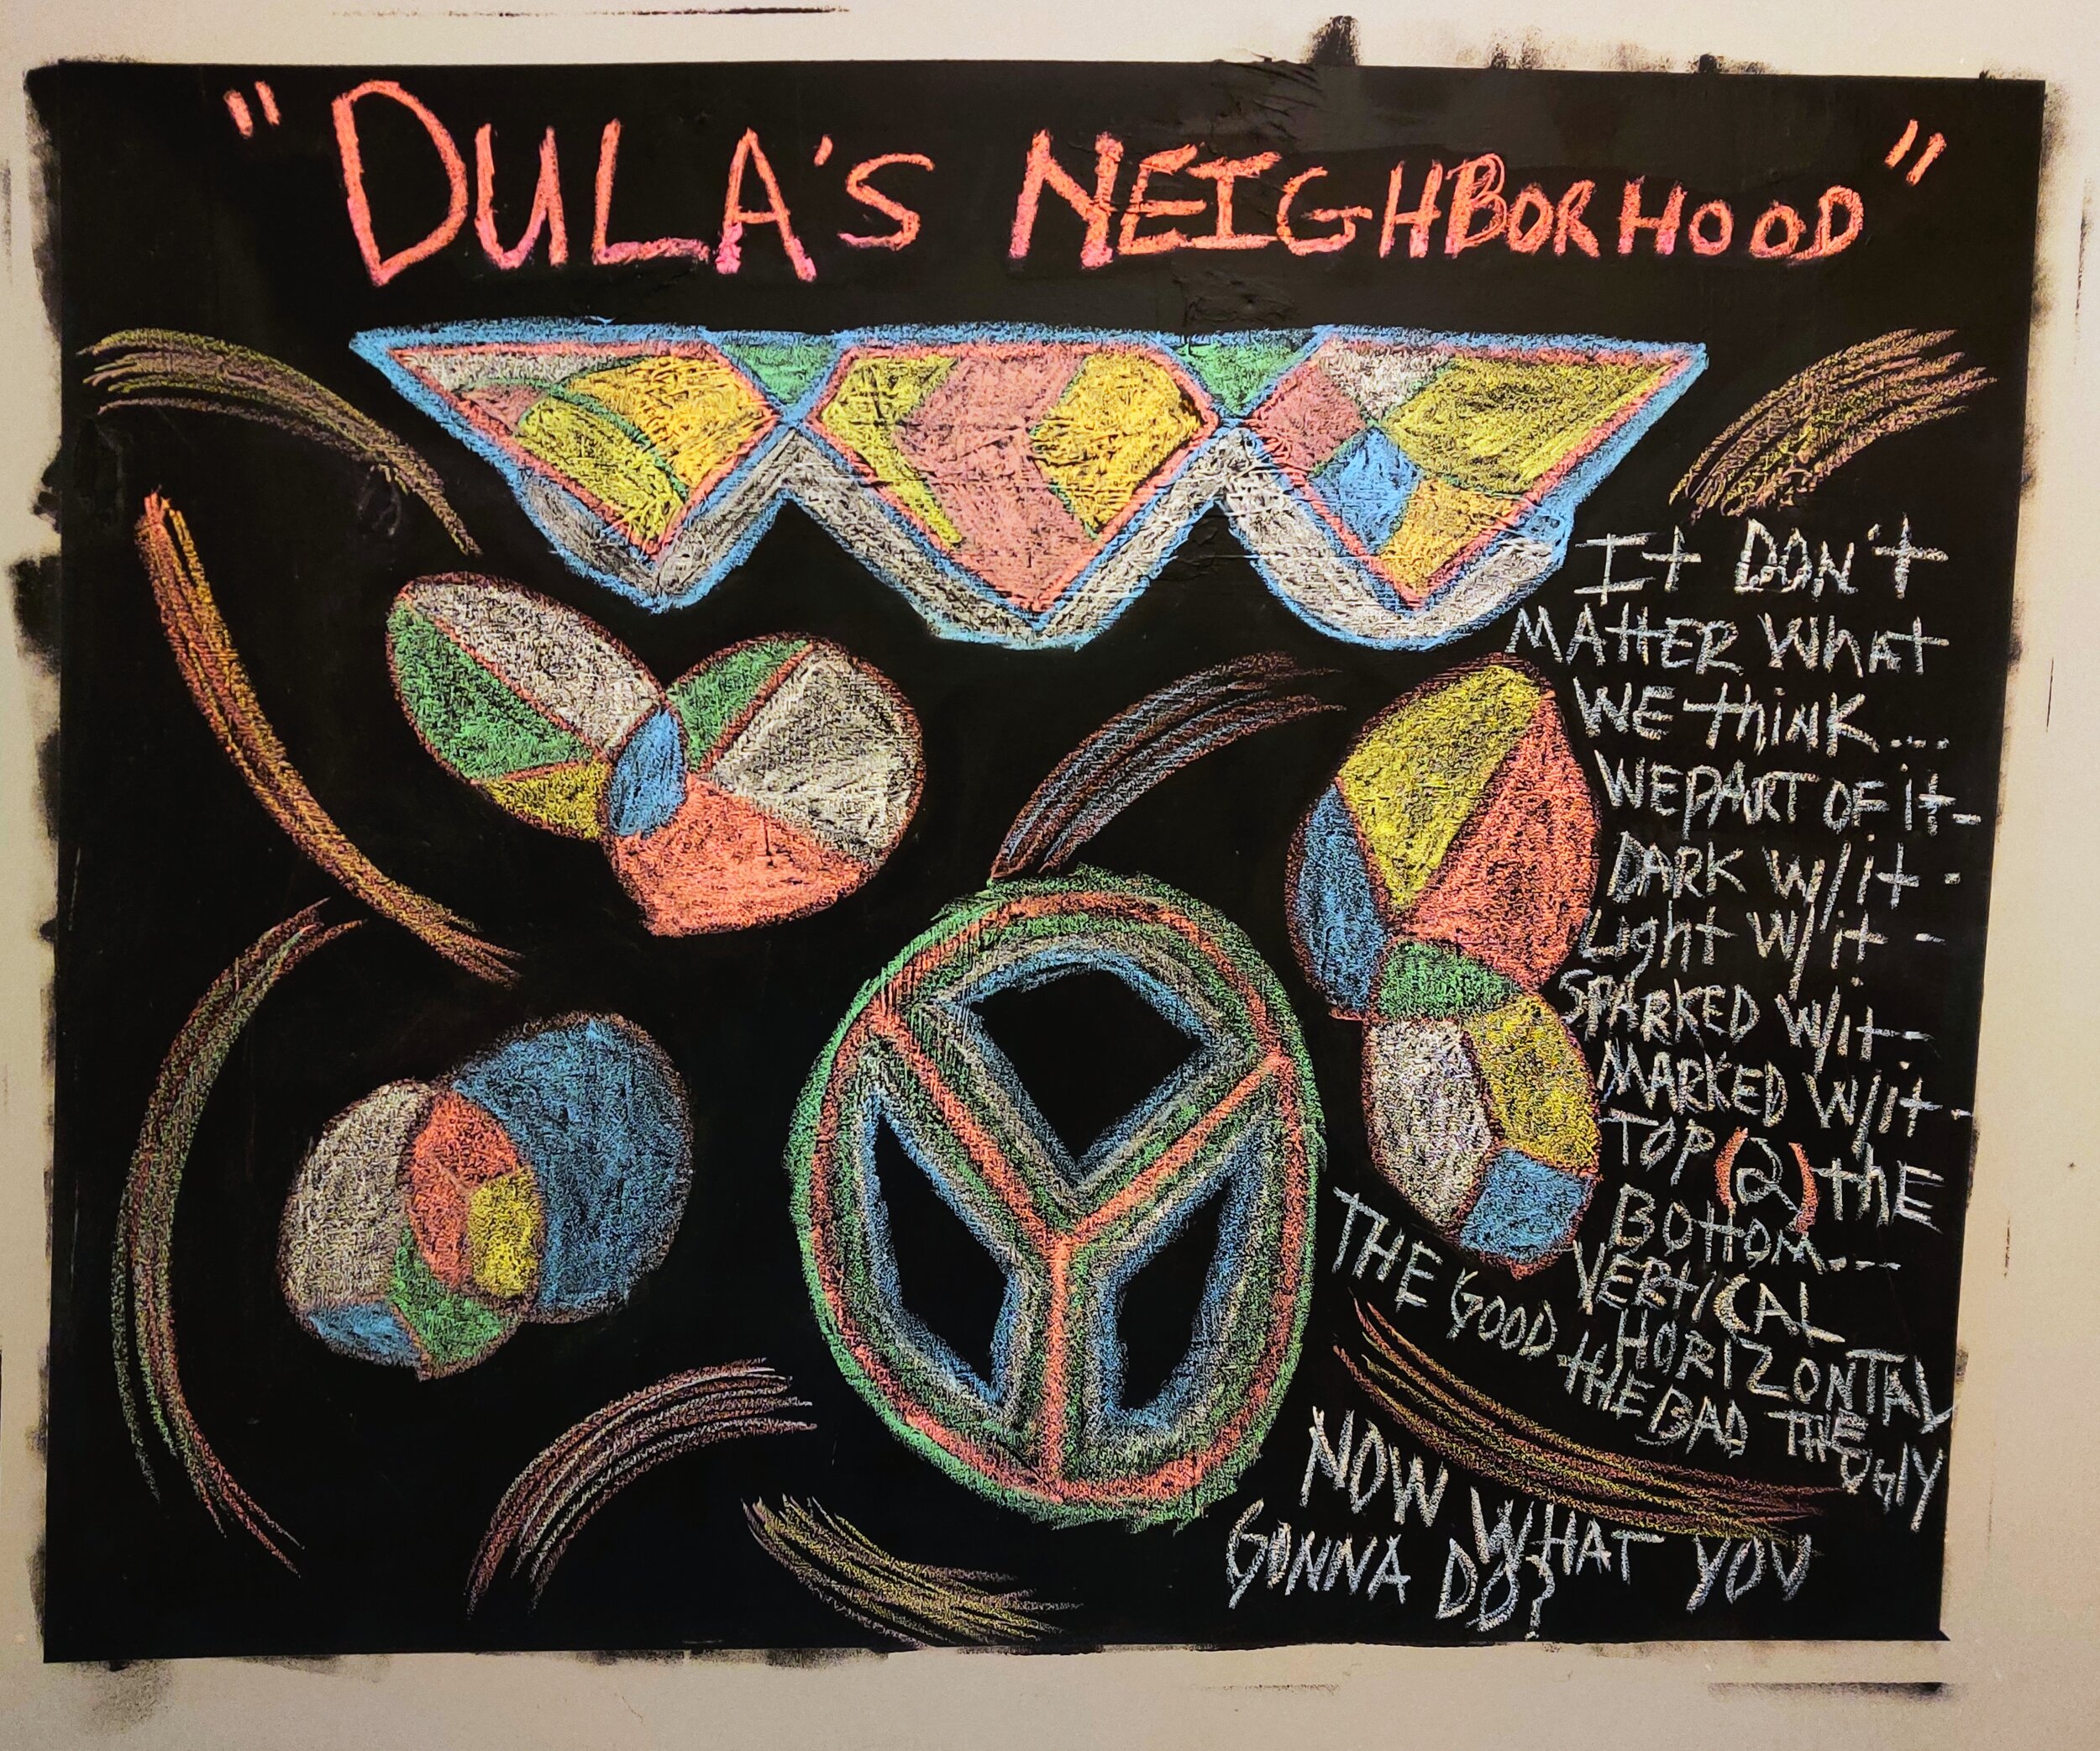 "DULA'S NEIGHBORHOOD"
It DON't
MAttER WHAt
WE thinK...
WE PART OF it-
DARK W/it-
Light W/it-
SPARKED W/it-
MARKED W/it-
TOP (2) thE
BOttOM...
VERtICAL
HORIZONTAL
THE GOOD tHE BAD THE UGLY
NOW WHAT YOU
GONNA DO?